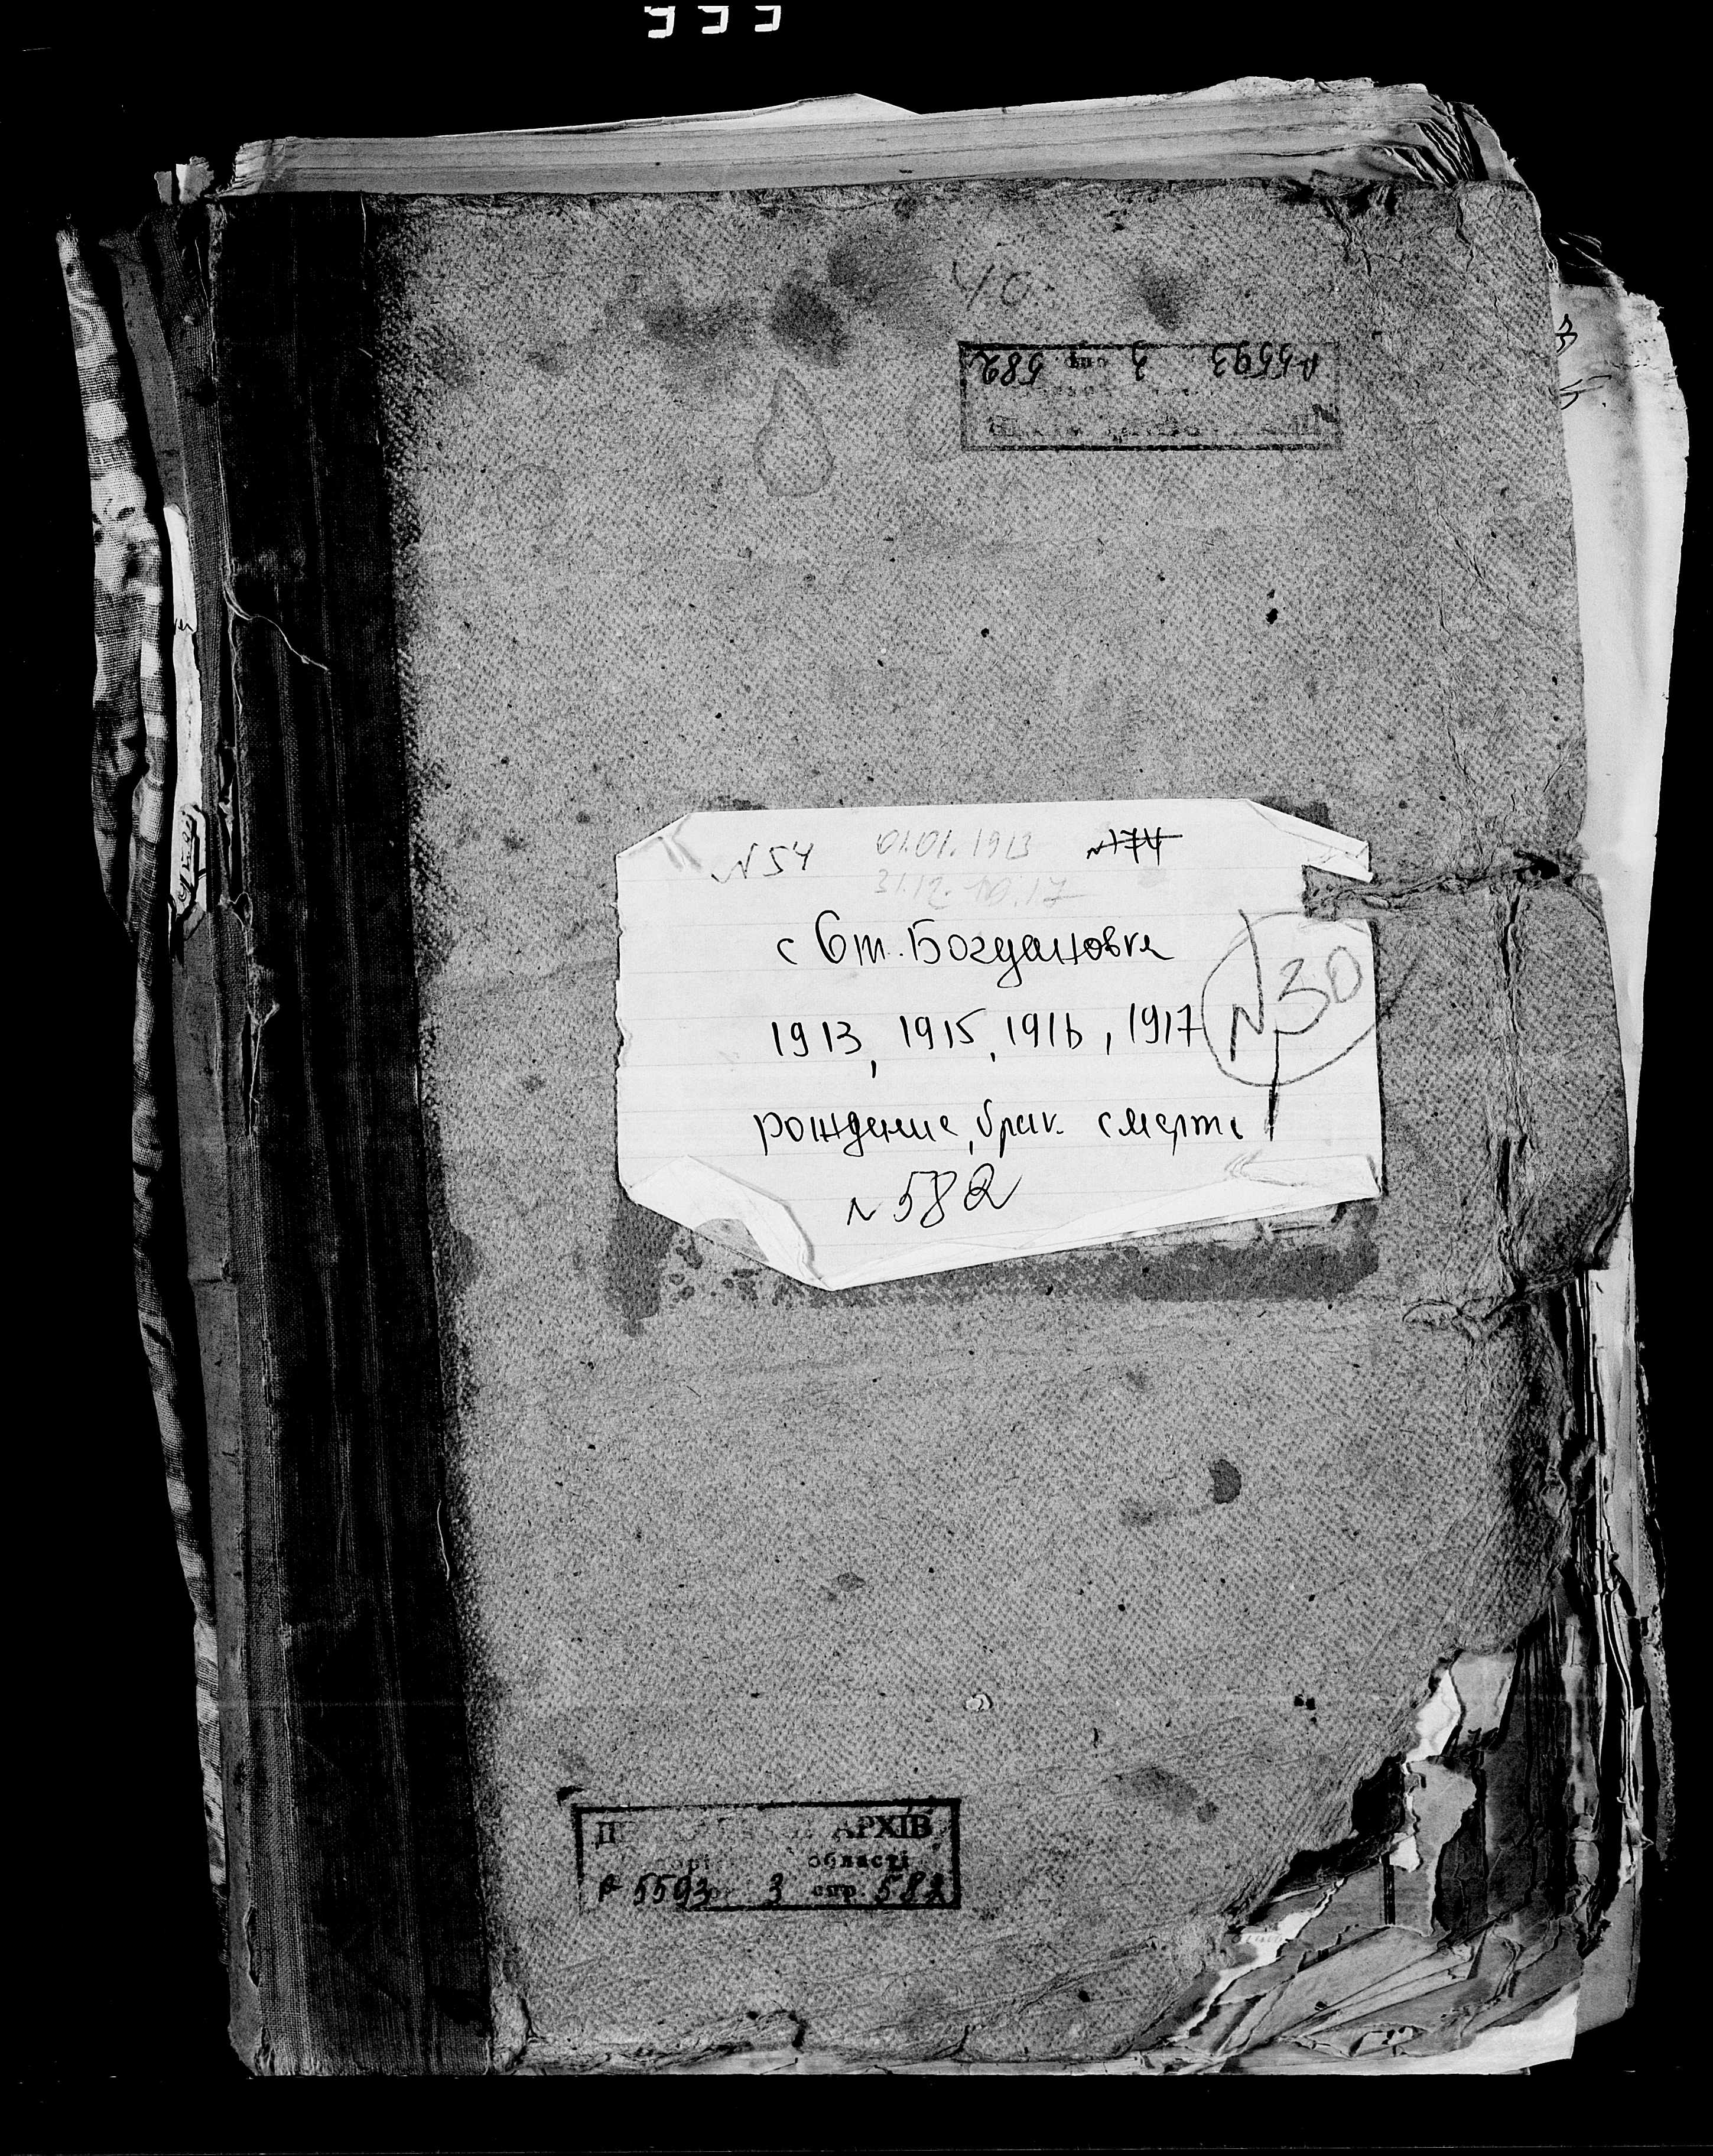 40
Р-5593 3 спр. 582
N 54 01.01.1913 N 174
31.12.1917
с Ст. Богдановка
N 30
1913, 1915, 1916, 1917
рождение, брак. смерть
N 582
АРХІВ
області
Р 5593 3 спр. 582